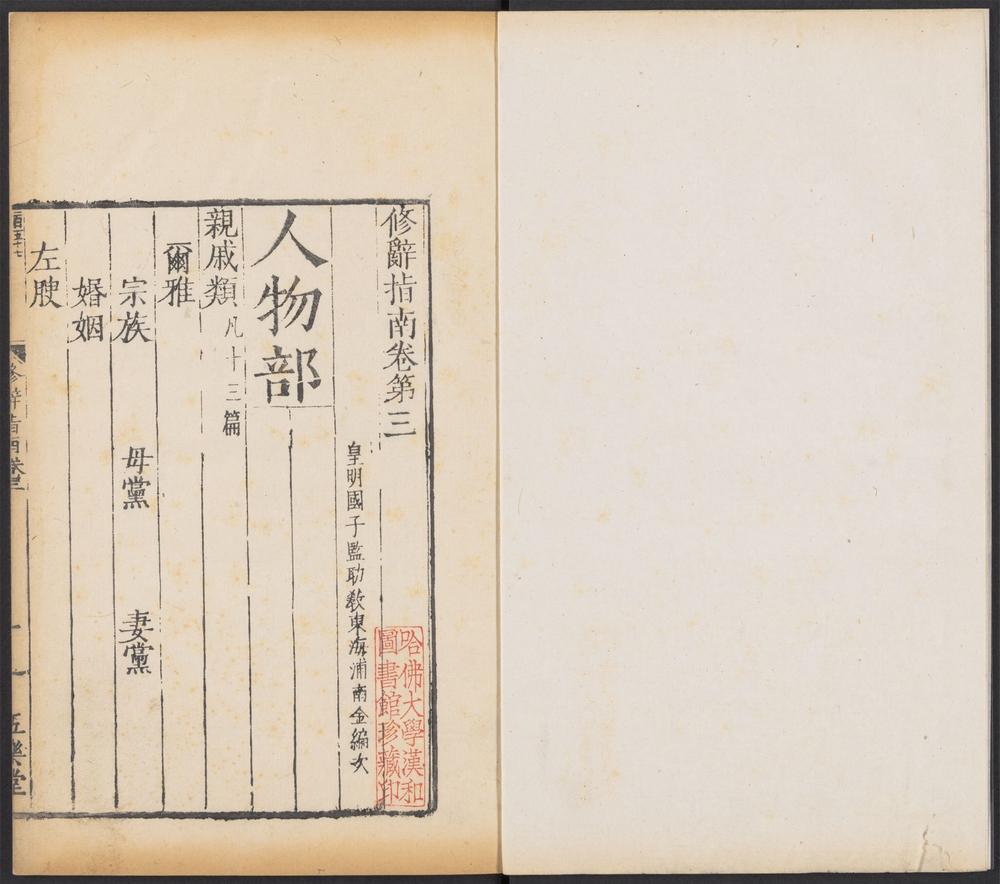 修辭指南卷第三
皇明國子監助教東海浦南金編次
人物部
親戚類凡十三篇
爾雅
宗族 母黨 妻黨
婚姻
左腴
修辭指南卷三
五樂堂
哈佛大學漢和
圖書館珍藏印